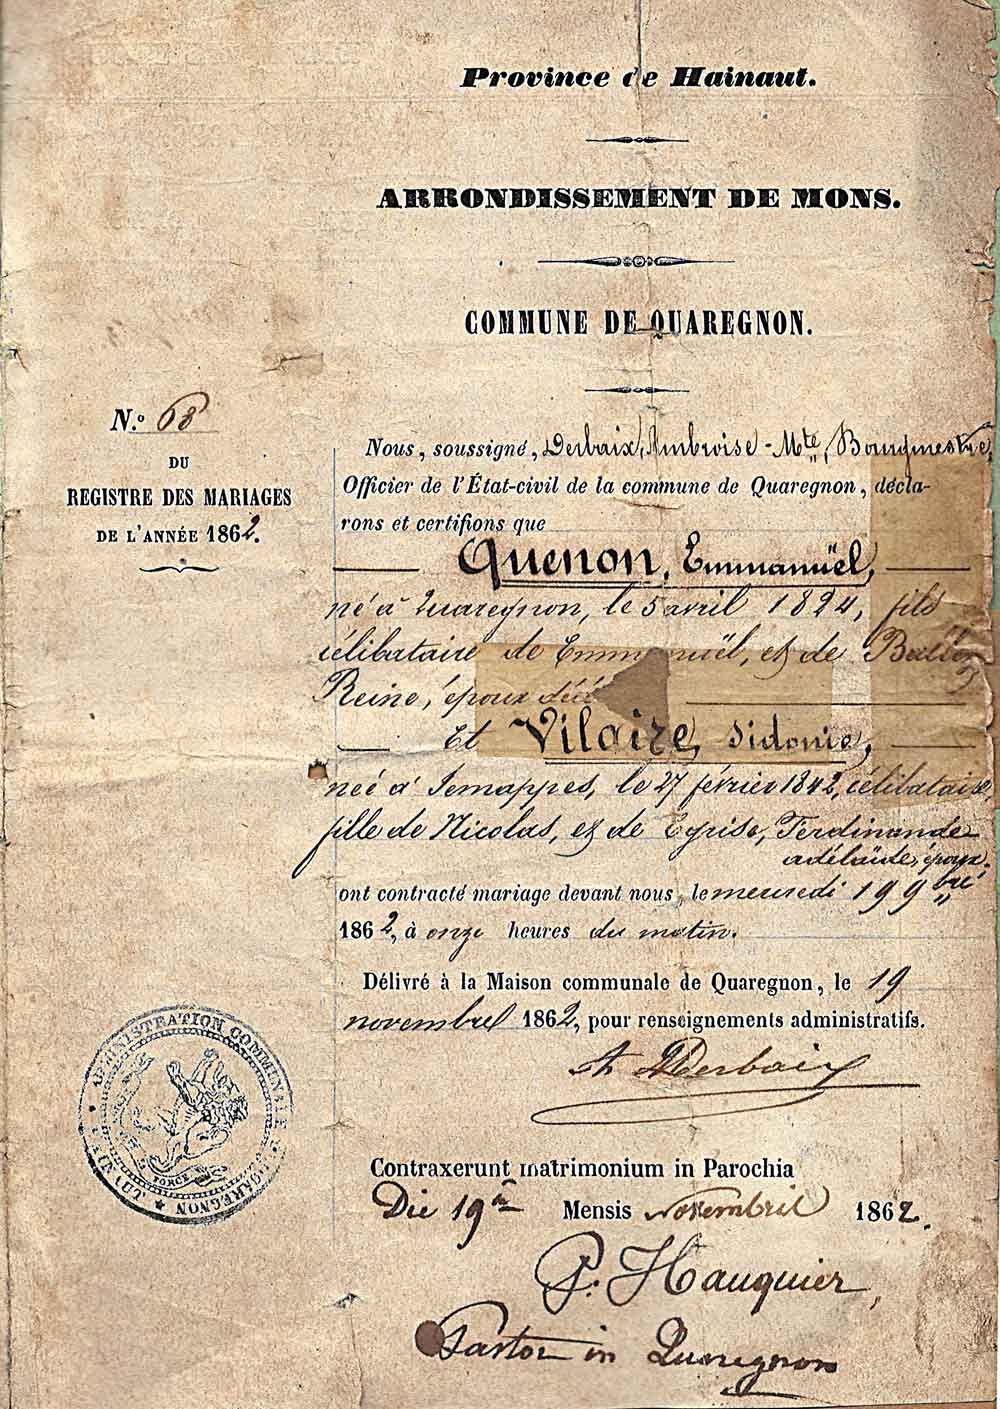 Province de Hainaut.
ARRONDISSEMENT DE MONS.
COMMUNE DE QUAREGNON.
N.o 68
DU
REGISTRE DES MARIAGES
DE L'ANNÉE 1862.
Nous, soussigné, Derbaix, Ambroise-Mte, Bourgmestre,
Officier de l'État-civil de la commune de Quaregnon, décla-
rons et certifions que
Quenon, Emmanuël,
né à Quaregnon, le 5 avril 1824, fils
célibataire de Emmanuël, et de
Reine, époux
Et Vilaire, Sidonie,
née à Jemappes, le 27 février 1842, célibataire,
fille de Nicolas, et de Ferdinande
adélaïde, époux,
ont contracté mariage devant nous, le mercredi 19 9bre
1862, à onze heures du matin.
Délivré à la Maison communale de Quaregnon, le 19
novembre 1862, pour renseignements administratifs.
Derbaix
ADMINISTRATION COMMUNALE
FORCE
Contraxerunt matrimonium in Parochia
Die 19a Mensis Novembris 1862.
P. Hauquier,
Pastor in Quaregnon